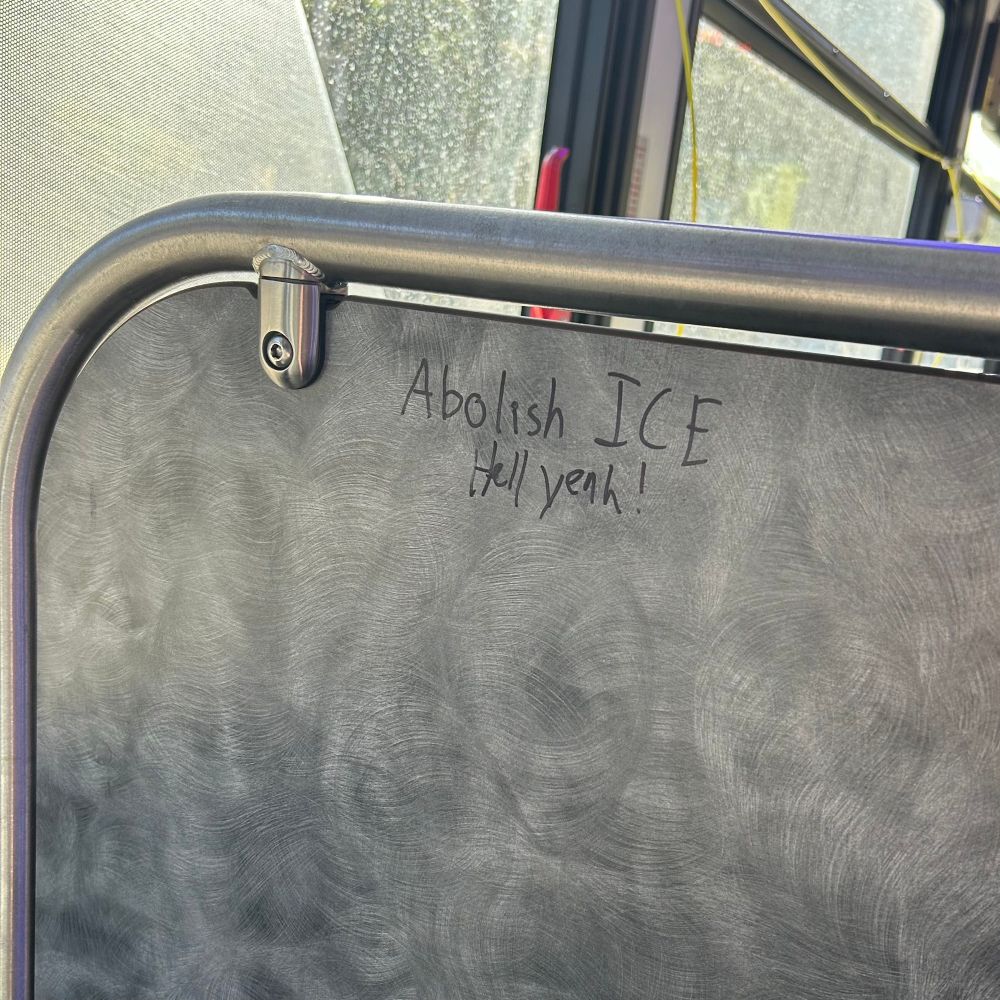 Abolish ICE
Hell yeah!